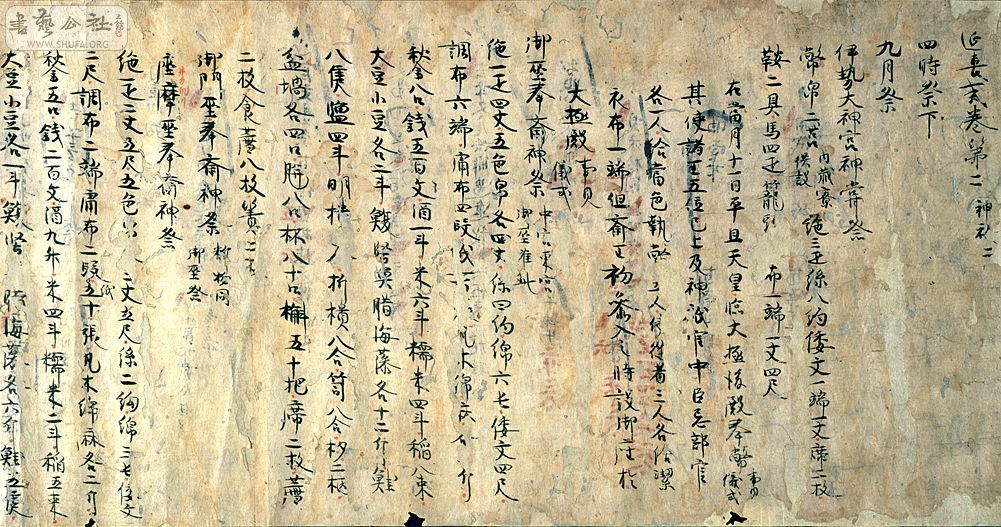 延喜式卷第二 神祇二
四時祭下
九月祭
伊勢大神宮神嘗祭
幣帛二 内藏寮供設 絁三疋絲八約倭文一端一丈席二枚
鞍二具馬四疋籠頭 布一端一丈四尺
在當月十一日平旦天皇臨大極後殿奉幣 事見儀式
其使諸王五位已上及神祇官中臣忌部官
各一人給當色執幣 三人各給潔
衣布一端但齋王初參入之時設御
大極殿 事見儀式
御巫奉齋神祭 中宮東宮御巫准此
絁一疋四丈五色帛各四丈絲四約綿六屯倭文四尺
調布六端庸布四段 凡木綿麻各 斤
秋釜八口錢五百文酒一斗米六斗糯米四斗稻八束
大豆小豆各二斗鰒堅魚腊海藻各十二斤鮭
八隻鹽四斗明櫃八折櫃八合笥八合杓二柄
盆堝各四口 八口杯八十口槲五十把席二枚薦
二枚食薦八枚簀二
御門巫奉齋神祭
座摩巫奉齋神祭 御巫祭
絁一疋二丈五尺五色 二丈五尺絲二約綿三屯倭文
二尺調布二端庸布二段紙五十張凡木綿麻各二斤
秋釜五口錢二百文酒九升米四斗糯米二斗稻五束
大豆小豆各一斗鰒堅 腊海藻各六斤鮭五隻
書藝公社
WWW.SHUFA.ORG